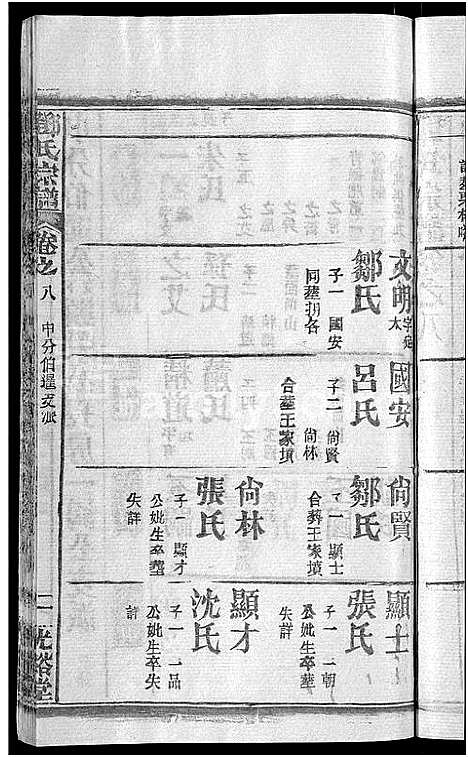 文明
鄒氏
子一 國安
國安
呂氏
子二 尙賢
尙林
合葬王家墳
尙賢
鄒氏
子一 顯士
合葬王家墳
尙林
張氏
子一 顯才
公妣生卒葬
失詳
顯士
張氏
子一 一朝
公妣生卒葬
失詳
顯才
沈氏
子一 一品
公妣生卒失
詳
氏宗譜
卷之八
中分伯暹支派
二
光裕堂